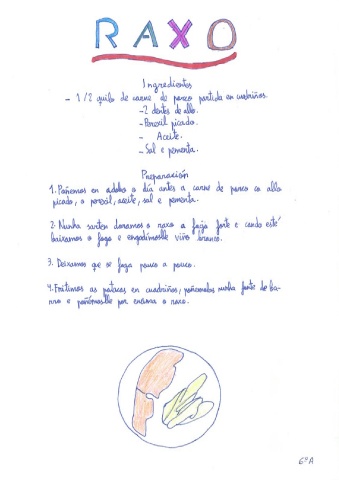 RAXO
Ingredientes
- 1/2 quilo de carne de porco partida en cadriños.
- 2 dentes de allo.
- Perexil picado.
- Aceite.
- Sal e pementa.
Preparación
1. Poñemos en adobo o día antes a carne de porco co allo
picado, o perexil, aceite, sal e pementa.
2. Nunha sartén douramos o raxo a fogo forte e cando esté
baixamos o fogo e engadímoslle viño branco.
3. Deixamos que se faga pouco a pouco.
4. Fritimos as patacas en cuadriños, poñemolas nunha fonte de ba-
rro e poñémoslle por encima o raxo.
6º A